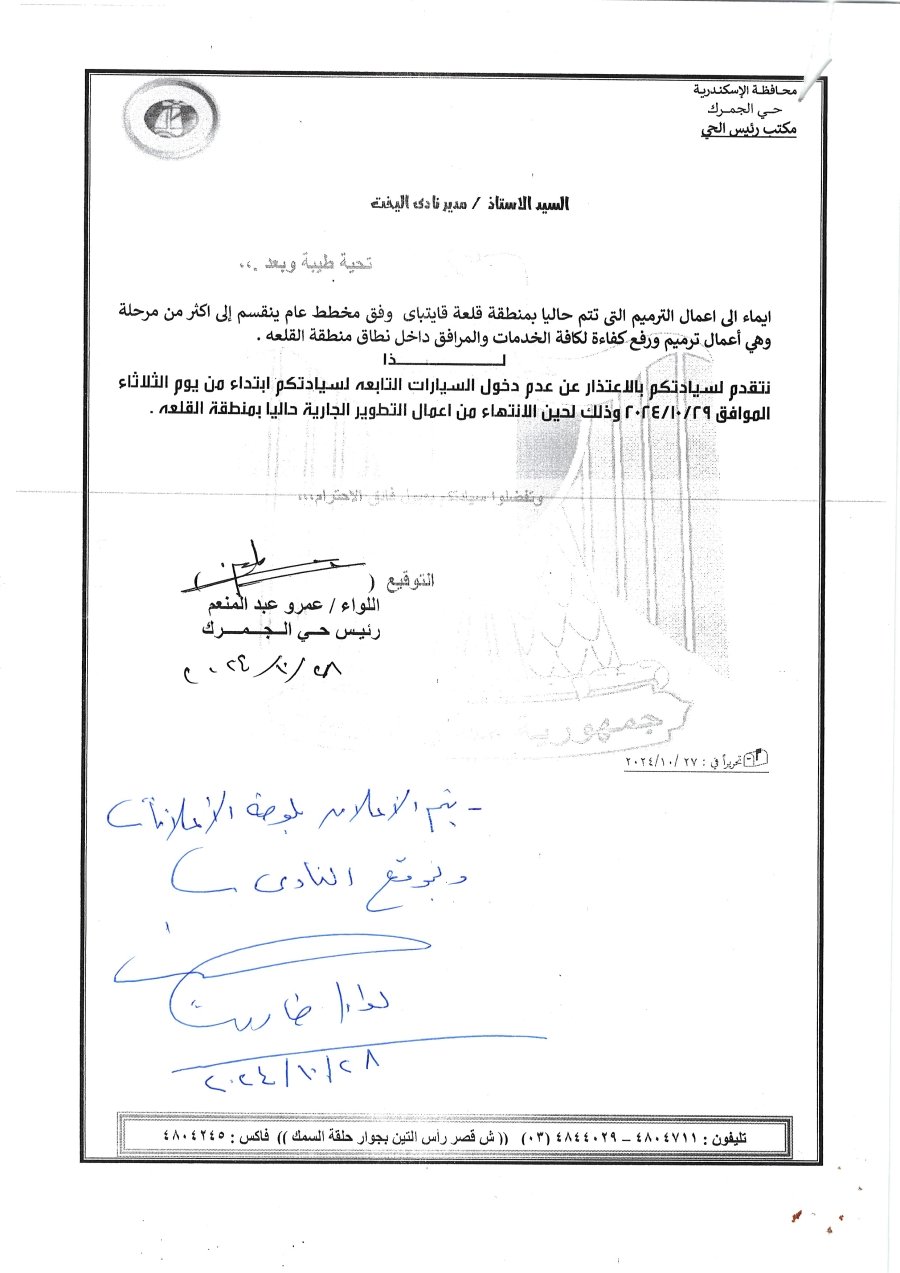 محافظة الإسكندرية
حي الجمرك
مكتب رئيس الحي
السيد الاستاذ / مدير نادى اليخت
تحية طيبة وبعد ،،،
ايماء الى اعمال الترميم التى تتم حاليا بمنطقة قلعة قايتباى وفق مخطط عام ينقسم إلى اكثر من مرحلة
وهي أعمال ترميم ورفع كفاءة لكافة الخدمات والمرافق داخل نطاق منطقة القلعه .
لــــــــذا
نتقدم لسيادتكم بالاعتذار عن عدم دخول السيارات التابعه لسيادتكم ابتداء من يوم الثلاثاء
الموافق ٢٠٢٤/١٠/٢٩ وذلك لحين الانتهاء من اعمال التطوير الجارية حاليا بمنطقة القلعه .
وتفضلوا سيادتكم فائق الاحترام،،،
التوقيع ( )
اللواء / عمرو عبد المنعم
رئيس حي الـجـمـــرك
٢٠٢٤/١٠/٢٨
جمهورية
تحريراً في : ٢٧ /٢٠٢٤/١٠
- يتم الاعلان بلوحة الأعلانات
وبموقع النادى
لواء/
٢٠٢٤/١٠/٢٨
تليفون : ٤٨٠٤٧١١ – ٤٨٤٤٠٢٩ (٠٣) (( ش قصر رأس التين بجوار حلقة السمك )) فاكس : ٤٨٠٤٢٤٥